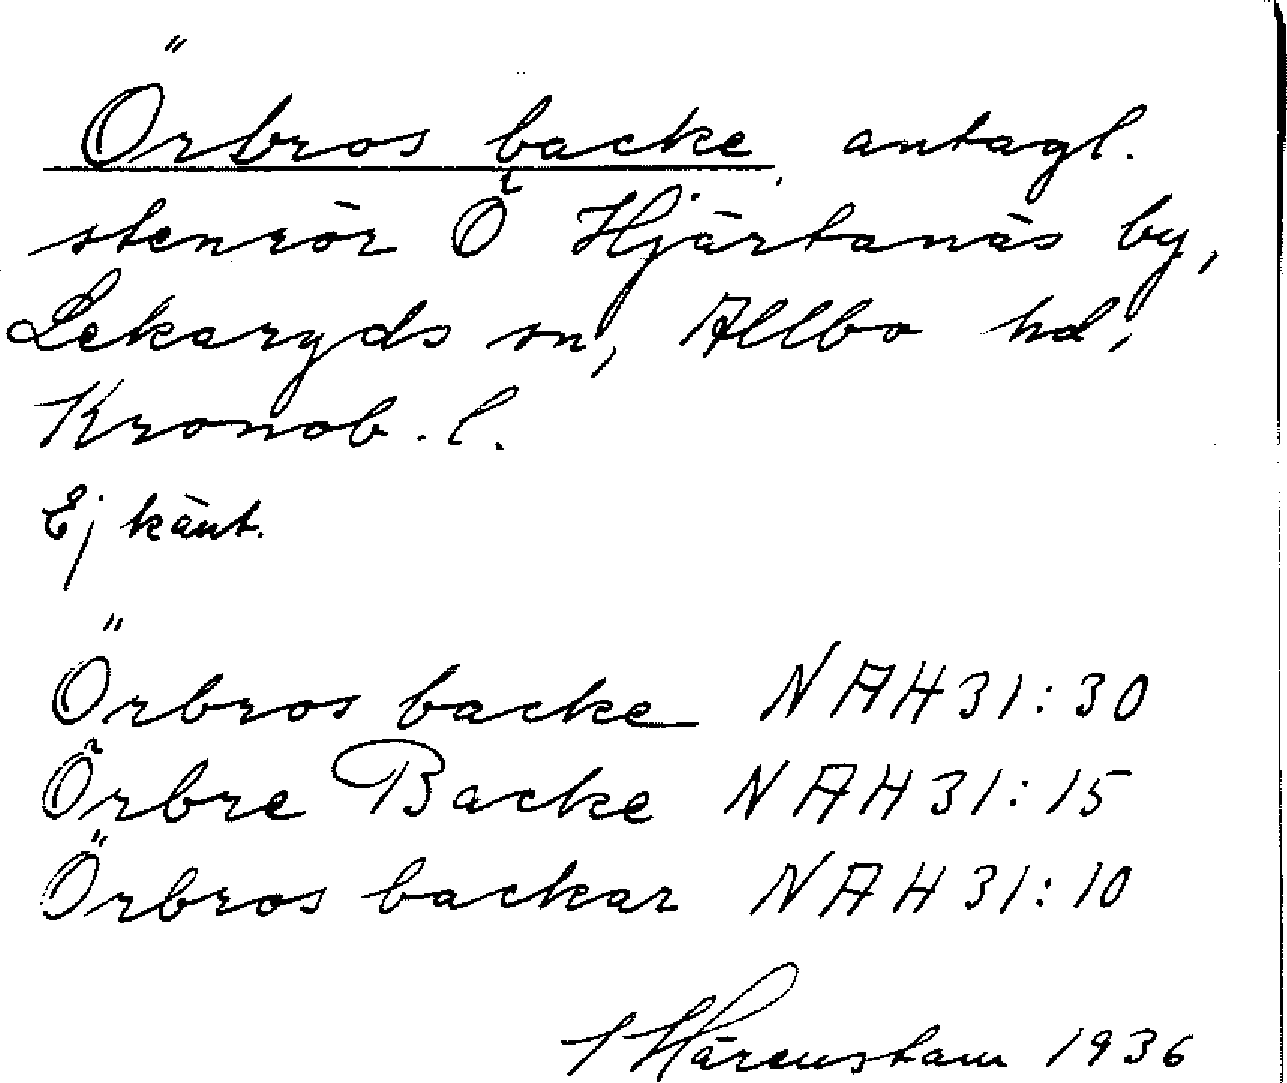 Örbros backe, antagl.
stenrör Ö Hjärtanäs by,
Lekaryds sn, Allbo hd,
Kronob. l.
Ej känt.
Örbros backe NAH31:30
Örbre Backe NAH31:15
Örbros backar NAH31:10
Härenstam 1936